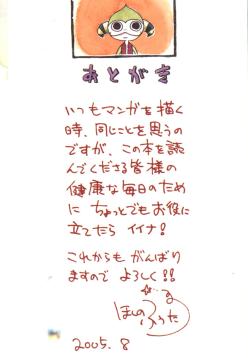 あとがき
いつもマンガを描く
時、同じことを思うの
ですが、この本を読
んでくださる皆様の
健康な毎日のため
に ちょっとでもお役に
立てたら イイナ!
これからも がんばり
ますので よろしく!!
ほしの ふうた
2005.8